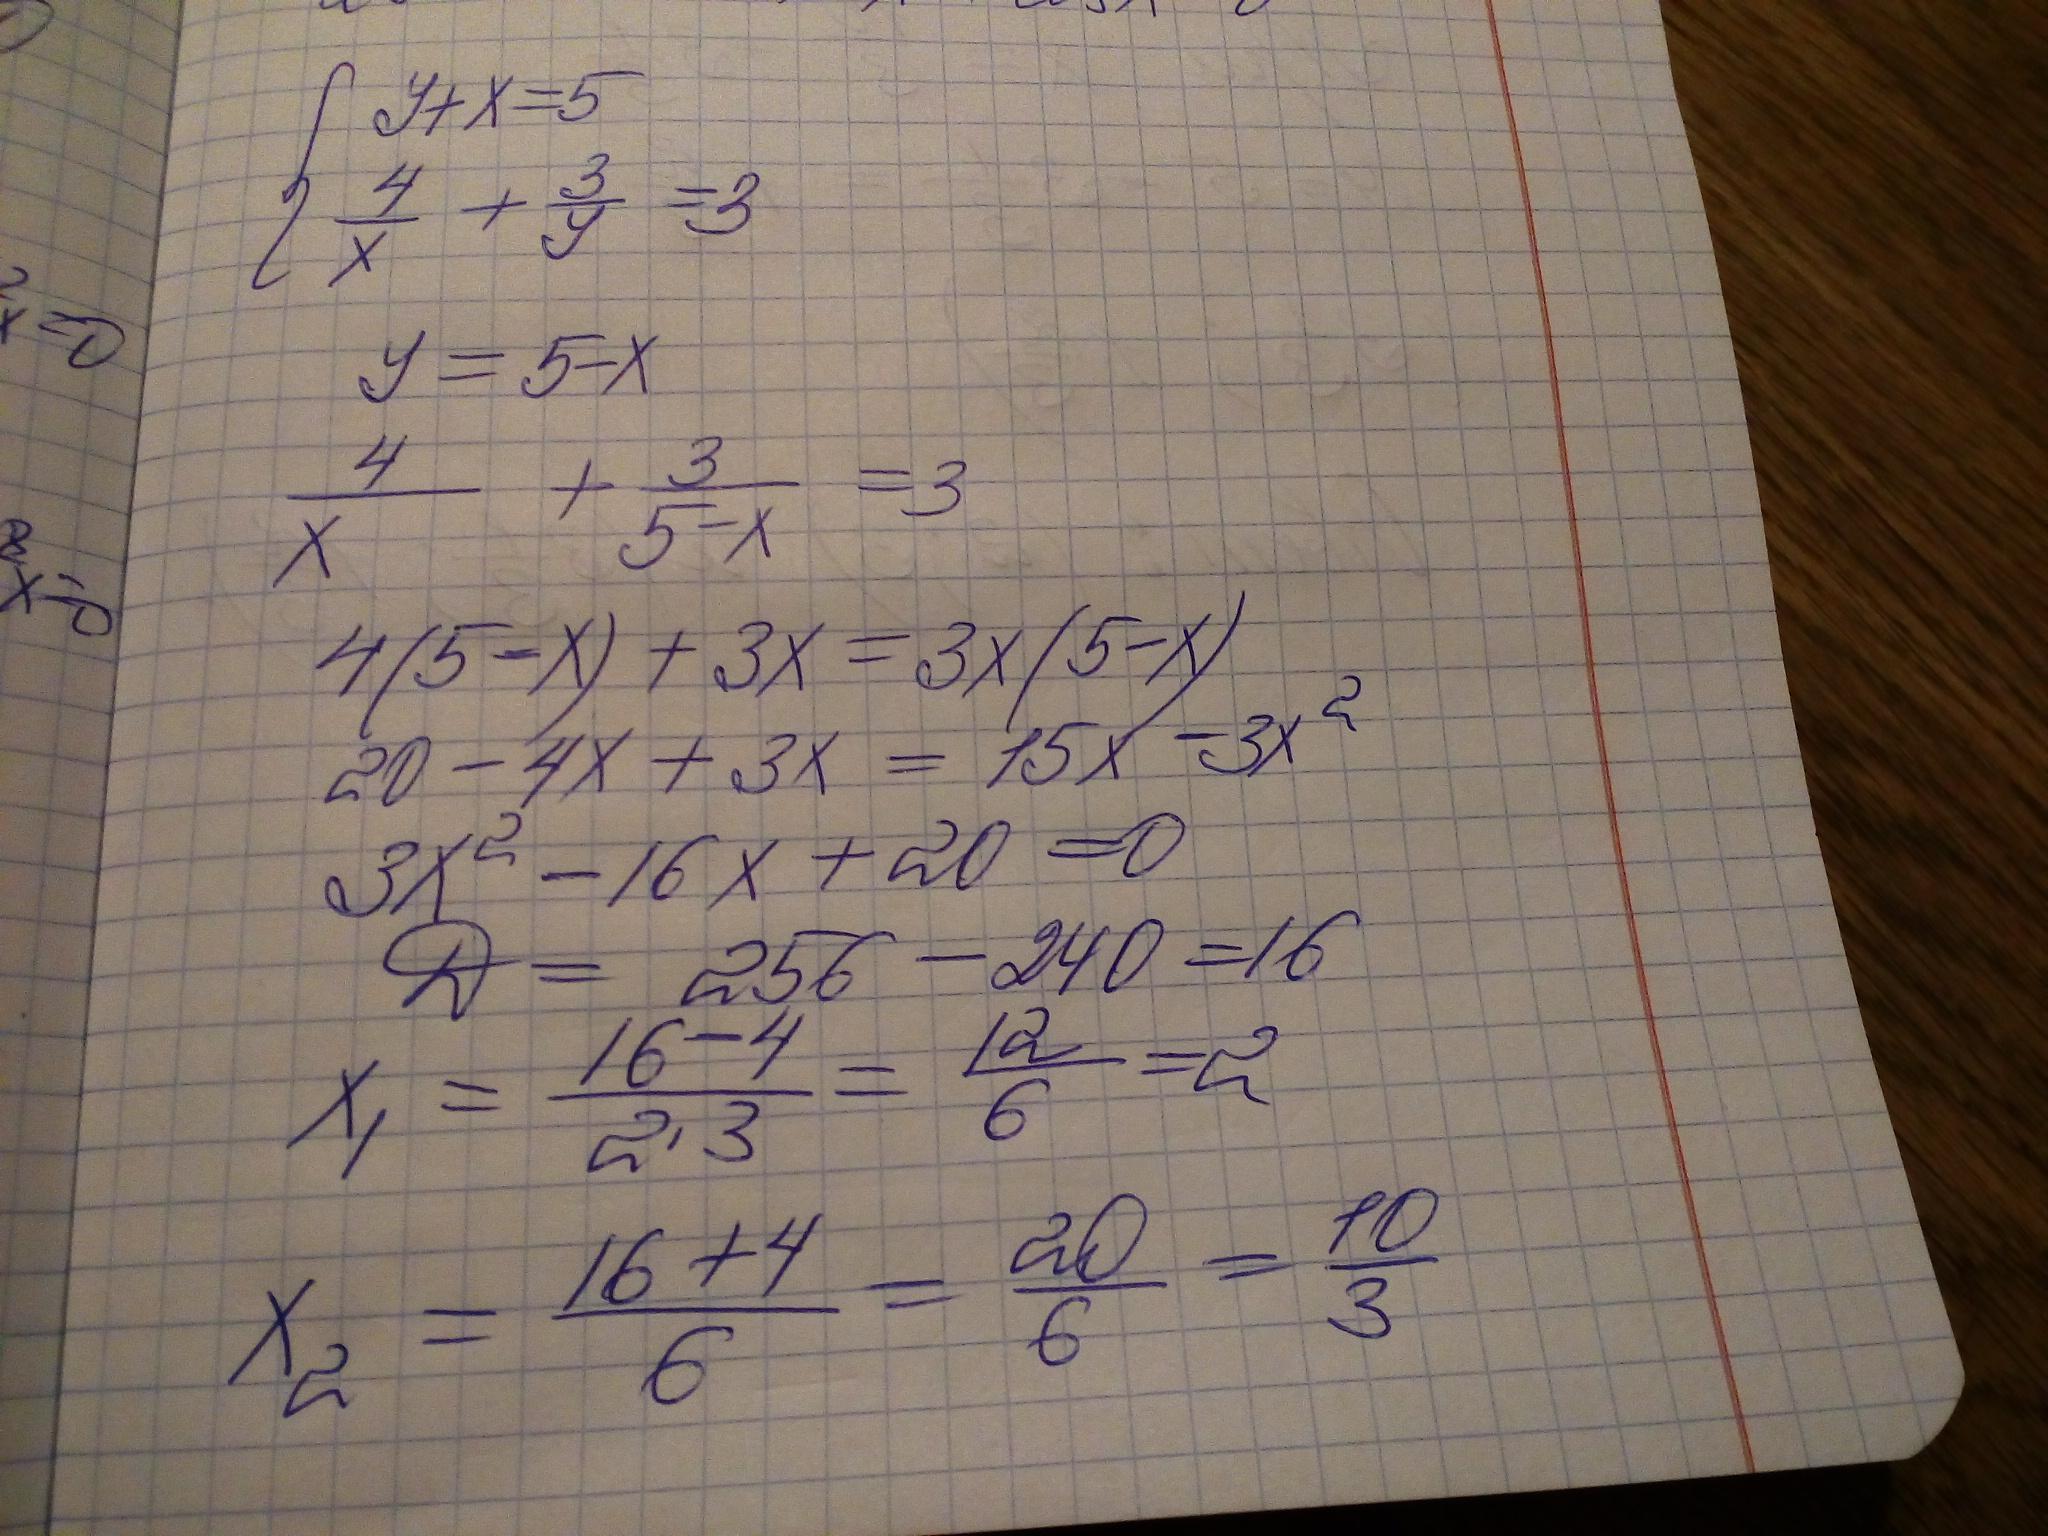 { y+x=5
4/x + 3/y =3
y = 5-x
4/x + 3/(5-x) =3
4(5-x) + 3x = 3x(5-x)
20 - 4x + 3x = 15x - 3x²
3x² - 16x + 20 = 0
D = 256 - 240 = 16
x₁ = (16-4)/(2·3) = 12/6 = 2
x₂ = (16+4)/6 = 20/6 = 10/3
x=0
x=0